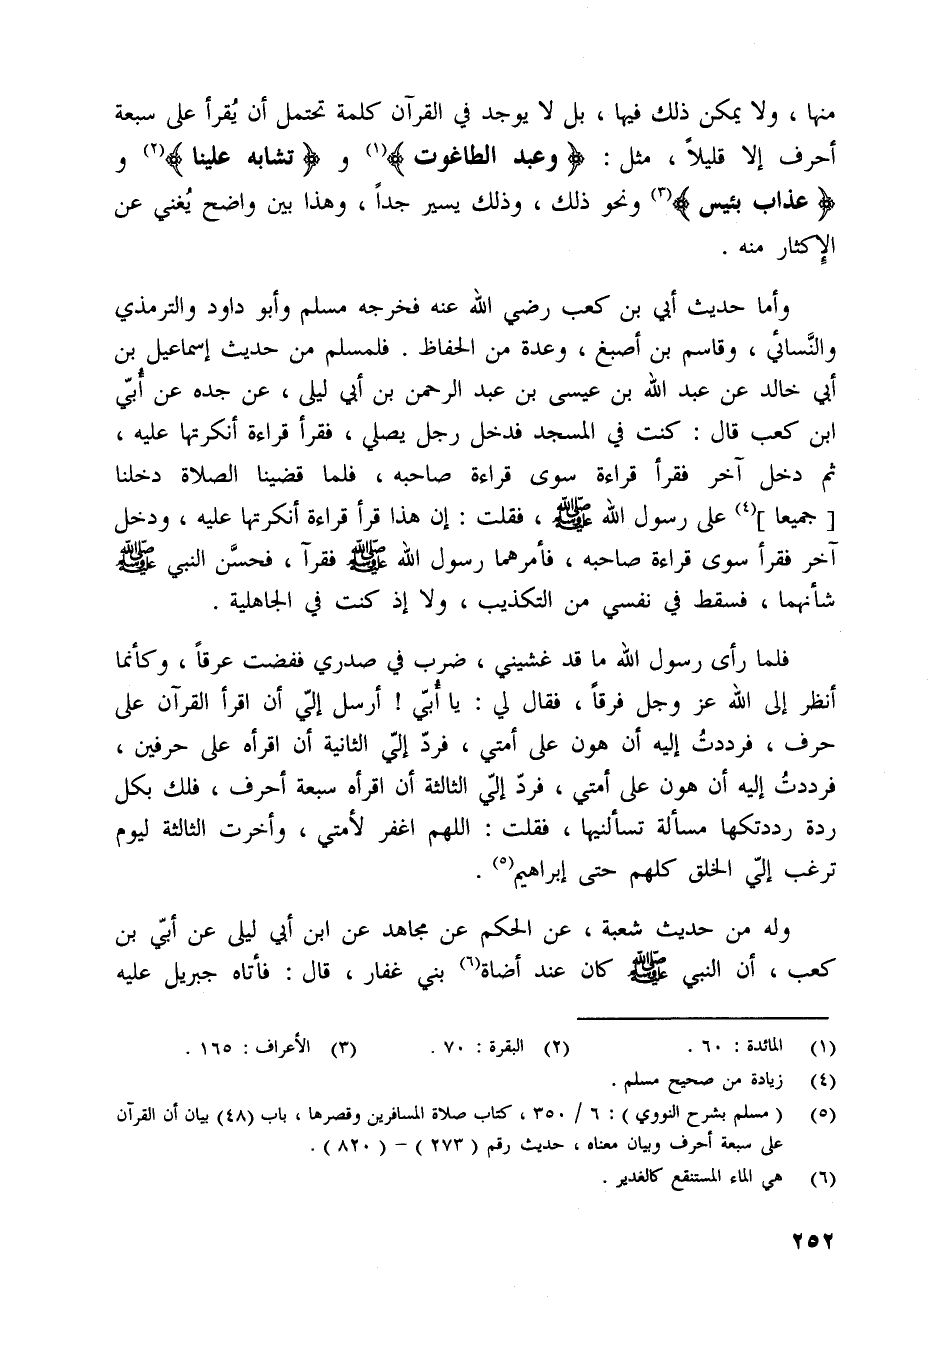 منها ، ولا يمكن ذلك فيها ، بل لا يوجد في القرآن كلمة تحتمل أن يُقرأ على سبعة
أحرف إلا قليلاً ، مثل : ﴿ وعبد الطاغوت ﴾(١) و ﴿ تشابه علينا ﴾(٢) و
﴿ عذاب بئيس ﴾(٣) ونحو ذلك ، وذلك يسير جداً ، وهذا بين واضح يُغني عن
الإكثار منه .
وأما حديث أبي بن كعب رضي الله عنه فخرجه مسلم وأبو داود والترمذي
والنَّسائي ، وقاسم بن أصبغ ، وعدة من الحفاظ . فلمسلم من حديث إسماعيل بن
أبي خالد عن عبد الله بن عيسى بن عبد الرحمن بن أبي ليلى ، عن جده عن أُبيّ
ابن كعب قال : كنت في المسجد فدخل رجل يصلي ، فقرأ قراءة أنكرتها عليه ،
ثم دخل آخر فقرأ قراءة سوى قراءة صاحبه ، فلما قضينا الصلاة دخلنا
[ جميعا ](٤) على رسول الله ﷺ ، فقلت : إن هذا قرأ قراءة أنكرتها عليه ، ودخل
آخر فقرأ سوى قراءة صاحبه ، فأمرهما رسول الله ﷺ فقرآ ، فحسَّن النبي ﷺ
شأنهما ، فسقط في نفسي من التكذيب ، ولا إذ كنت في الجاهلية .
فلما رأى رسول الله ما قد غشيني ، ضرب في صدري ففضت عرقاً ، وكأنما
أنظر إلى الله عز وجل فرقاً ، فقال لي : يا أُبيّ ! أرسل إليّ أن اقرأ القرآن على
حرف ، فرددتُ إليه أن هون على أمتي ، فردّ إليّ الثانية أن اقرأه على حرفين ،
فرددتُ إليه أن هون على أمتي ، فردّ إليّ الثالثة أن اقرأه سبعة أحرف ، فلك بكل
ردة رددتكها مسألة تسألنيها ، فقلت : اللهم اغفر لأمتي ، وأخرت الثالثة ليوم
ترغب إليّ الخلق كلهم حتى إبراهيم(٥) .
وله من حديث شعبة ، عن الحكم عن مجاهد عن ابن أبي ليلى عن أبيّ بن
كعب ، أن النبي ﷺ كان عند أضاة(٦) بني غفار ، قال : فأتاه جبريل عليه
(١) المائدة : ٦٠ . (٢) البقرة : ٧٠ . (٣) الأعراف : ١٦٥ .
(٤) زيادة من صحيح مسلم .
(٥) ( مسلم بشرح النووي ) : ٦ / ٣٥٠ ، كتاب صلاة المسافرين وقصرها ، باب (٤٨) بيان أن القرآن
على سبعة أحرف وبيان معناه ، حديث رقم ( ٢٧٣ ) – ( ٨٢٠ ) .
(٦) هي الماء المستنقع كالغدير .
٢٥٢